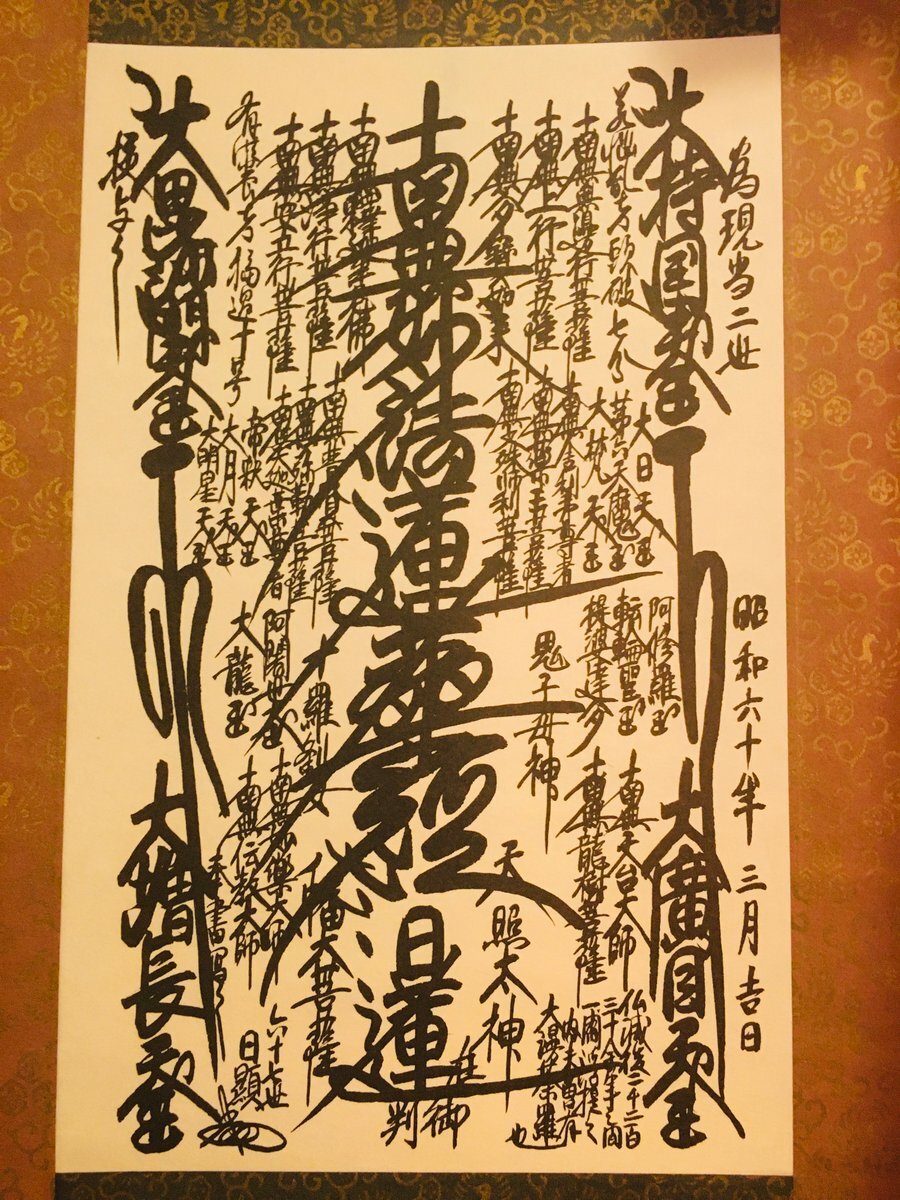 為現当二世
昭和六十年 三月吉日
大持国天王
大廣目天王
若悩乱者頭破七分
南無無邊行菩薩
南無上行菩薩
南無多寳如来
南無妙法蓮華経
日蓮
在御判
南無釋迦牟尼佛
南無浄行菩薩
南無安立行菩薩
有供養者福過十号
大毘沙門天王
大増長天王
大日天王
第六天魔王
大梵天王
南無舎利弗尊者
南無薬王菩薩
南無文殊師利菩薩
南無普賢菩薩
南無弥勒菩薩
南無大迦葉尊者
帝釈天王
大月天王
大明星天王
阿修羅王
転輪聖王
提婆達多
鬼子母神
十羅刹女
阿闍世王
大龍王
南無天台大師
南無龍樹菩薩
天照太神
八幡大菩薩
南無妙樂大師
南無伝教大師
仏滅後二千二百
三十余年之間
一閻浮提之
内未曾有
大漫荼羅也
奉書写之
六十七世
日顕